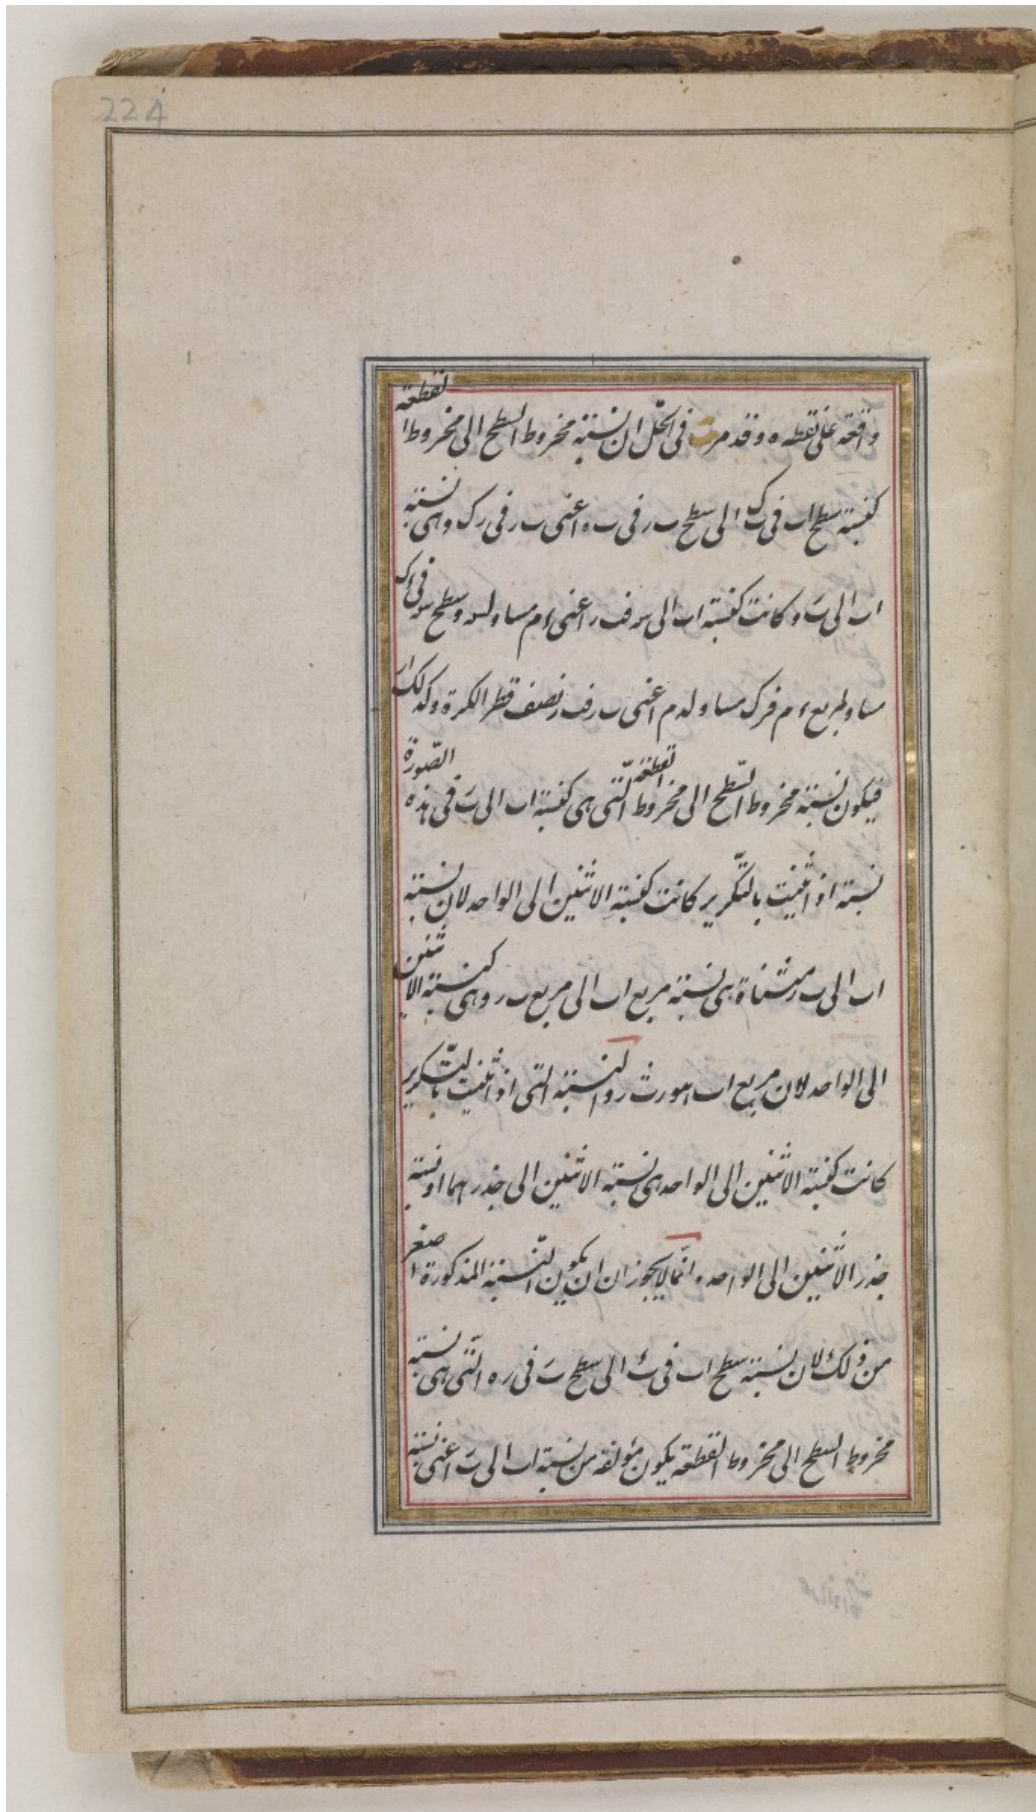 224
واقعة على نقطة ه وقد مرت فى الحل ان نسبة مخروط السطح الى مخروط القطعة
كنسبة سطح اب فى الى سطح ب ر فى ب ه اعنى ب ر فى رك وهى نسبة
اب الى وكانت كنسبة اب الى اعنى ءم مساو وسطح فى
مساو لمربع ءم فرك مساو لدم اعنى نصف قطر الكرة وكذلك ار
فيكون نسبة مخروط السطح الى مخروط القطعة التى هى كنسبة اب الى فى هذه الصّورة
نسبة اذ اثنيت بالتكرير كانت كنسبة الاثنين الى الواحد لان نسبة
اب الى ب ر مثناة هى نسبة مربع اب الى مربع ب ر وهى كنسبة الاثنين
الى الواحد لان مربع اب والنسبة التى اذ اثنيت بالتّكرير
كانت كنسبة الاثنين الى الواحد هى نسبة الاثنين الى جذرهما او نسبة
جذر الاثنين الى الواحد وانّما لايجوز ان يكون النّسبة المذكورة اصغر
من ذلك لان نسبة سطح اب فى الى سطح فى ره التّى هى نسبة
مخروط السطح الى مخروط القطعة يكون مؤلفة من نسبة اب الى اعنى نسبة